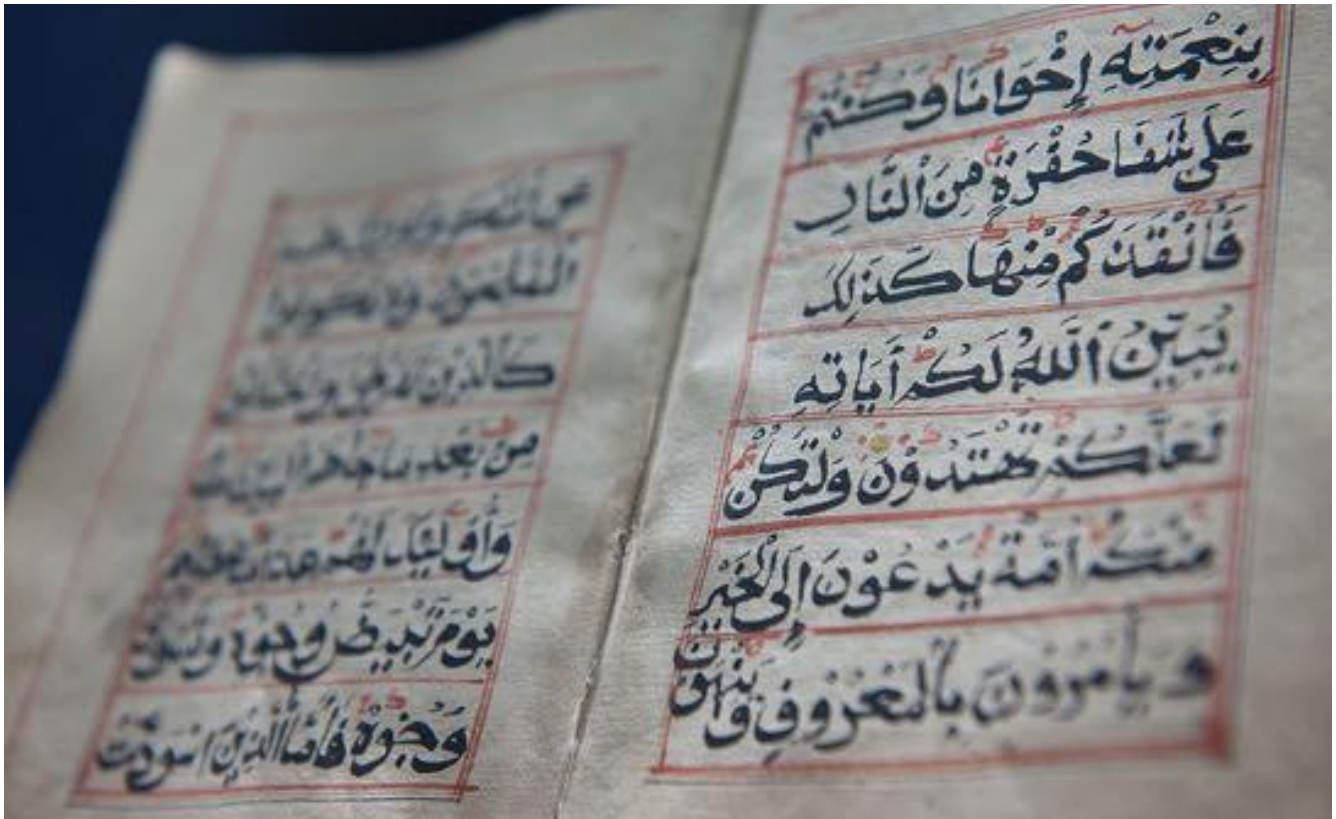 بِنِعْمَتِهِ إِخْوَانًا وَكُنْتُمْ
عَلَى شَفَا حُفْرَةٍ مِنَ النَّارِ
فَأَنْقَذَكُمْ مِنْهَا كَذَلِكَ
يُبَيِّنُ اللَّهُ لَكُمْ أَيَاتِهِ
لَعَلَّكُمْ تَهْتَدُونَ وَلْتَكُنْ
مِنْكُمْ أُمَّةٌ يَدْعُونَ إِلَى الْخَيْرِ
وَيَأْمُرُونَ بِالْمَعْرُوفِ وَيَنْهَوْنَ
عَنِ الْمُنْكَرِ وَأُولَئِكَ هُمُ
الْمُفْلِحُونَ وَلَا تَكُونُوا
كَالَّذِينَ تَفَرَّقُوا وَاخْتَلَفُوا
مِنْ بَعْدِ مَا جَاءَهُمُ الْبَيِّنَاتُ
وَأُولَئِكَ لَهُمْ عَذَابٌ عَظِيمٌ
يَوْمَ تَبْيَضُّ وُجُوهٌ وَتَسْوَدُّ
وُجُوهٌ فَأَمَّا الَّذِينَ اسْوَدَّتْ